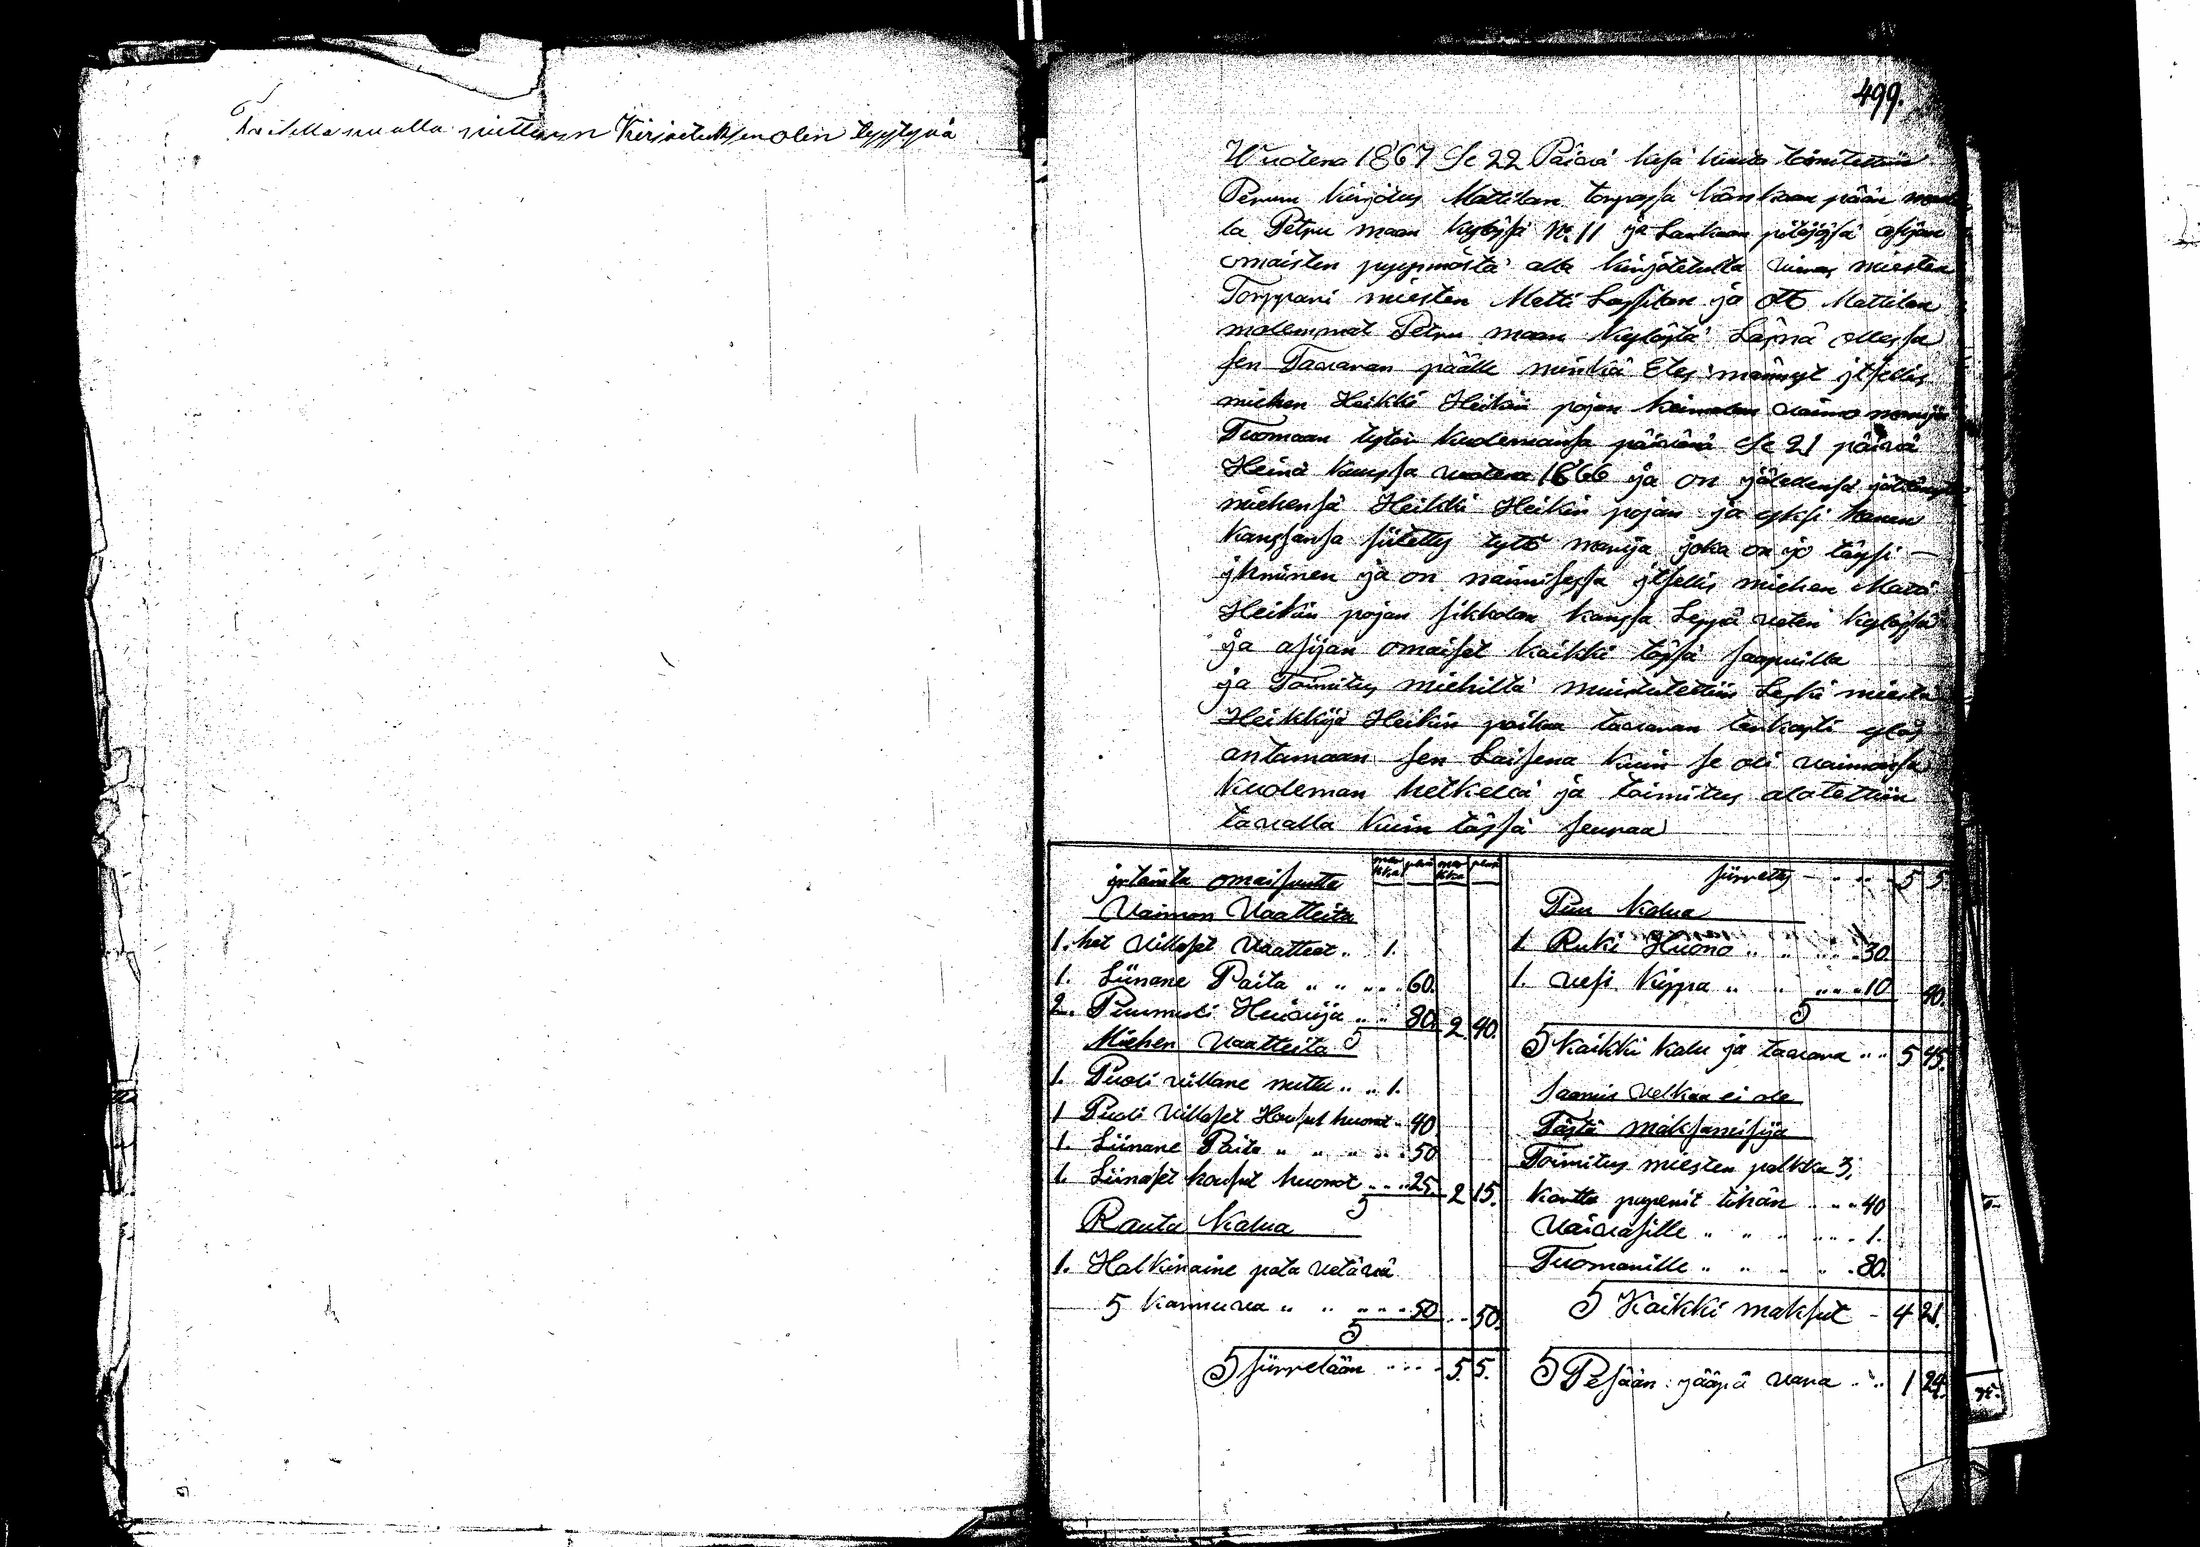 Kirjoituksen olen tyytyvä
499.
Wuotena 1867 Se 22 Päivä kesä kuuta toimitettiin
Perun kirjoitus Mattilan torpassa kånkaan pään
la Petru maan kylässä No 11 ja Laukaan pitäjäsä asijan
omaisten pyynnöstä alla kirjotetulta vieras miesten
Torppari miesten Matti Lassilan ja otto Mattilan
molemmat Petru maan kylästä Läsnä ollessa
sen Tavaran päälle minkä Etes männyt jtsellis
miehen Heikki Heikin pojan vaimo
Tuomaan tytön kuolemansa päivänä Se 21 päivä
Heinä kuussa vuotena 1866 ja on jälellensä
miehensä Heikki Heikin pojan ja yksi hänen
kanssansa siitetty tyttö marija joka on jo täysi –
jkminen ja on naimisessa jtsellis miehen Matti
Heikin pojan sikkolan kanssa Leppä veten kylässä
ja asijan omaiset kaikki tässä saapuilla
ja Toimitus miehiltä muistutettiin Leski miestä
Heikkijä Heikin poikaa tavaran tarkasti ylös
antamaan sen Laisena kuin se oli vaimonsa
kuoleman hetkellä ja toimitus alotettiin
tavalla kuin tässä seuraa
jrtainta omaisuutta
mar kka peni mar kka peni
Vaimon Vaatteita
1. het villaset vaatteet .. 1.
1. Liinane Paita .. .. .. 60.
2. Pummuli Huivija .. .. 80. 2 40.
Miehen Vaatteita
1. Puoli villane nuttu .. .. 1.
1 Puoli villaset Housut huonot .. 40
1. Liinane Paita .. .. .. .. 50
1. Liinaset housut huonot .. .. 25 2 15.
Rauta kalua
1. Halkinaine pata vetävä
5 kannuva .. .. .. .. 50 .. 50.
S siirretään .. .. 5. 5.
siirretty – .. .. 5 5.
Puu kalua
1 Ruki Huono .. .. .. .. 30
1. vesi kippa .. .. .. .. 10 40.
S kaikki kalu ja tavara .. .. 5 45.
saamis velkaa ei ole
Tästä maksamisija
Toimitus miesten palkka 3.
kartta paperit tihän .. .. 40
Vaivasille .. .. .. .. 1.
Tuomarille .. .. .. .. 80.
S Kaikki maksut – 4 21.
S Pesään jääpä vara .. .. 1 24.